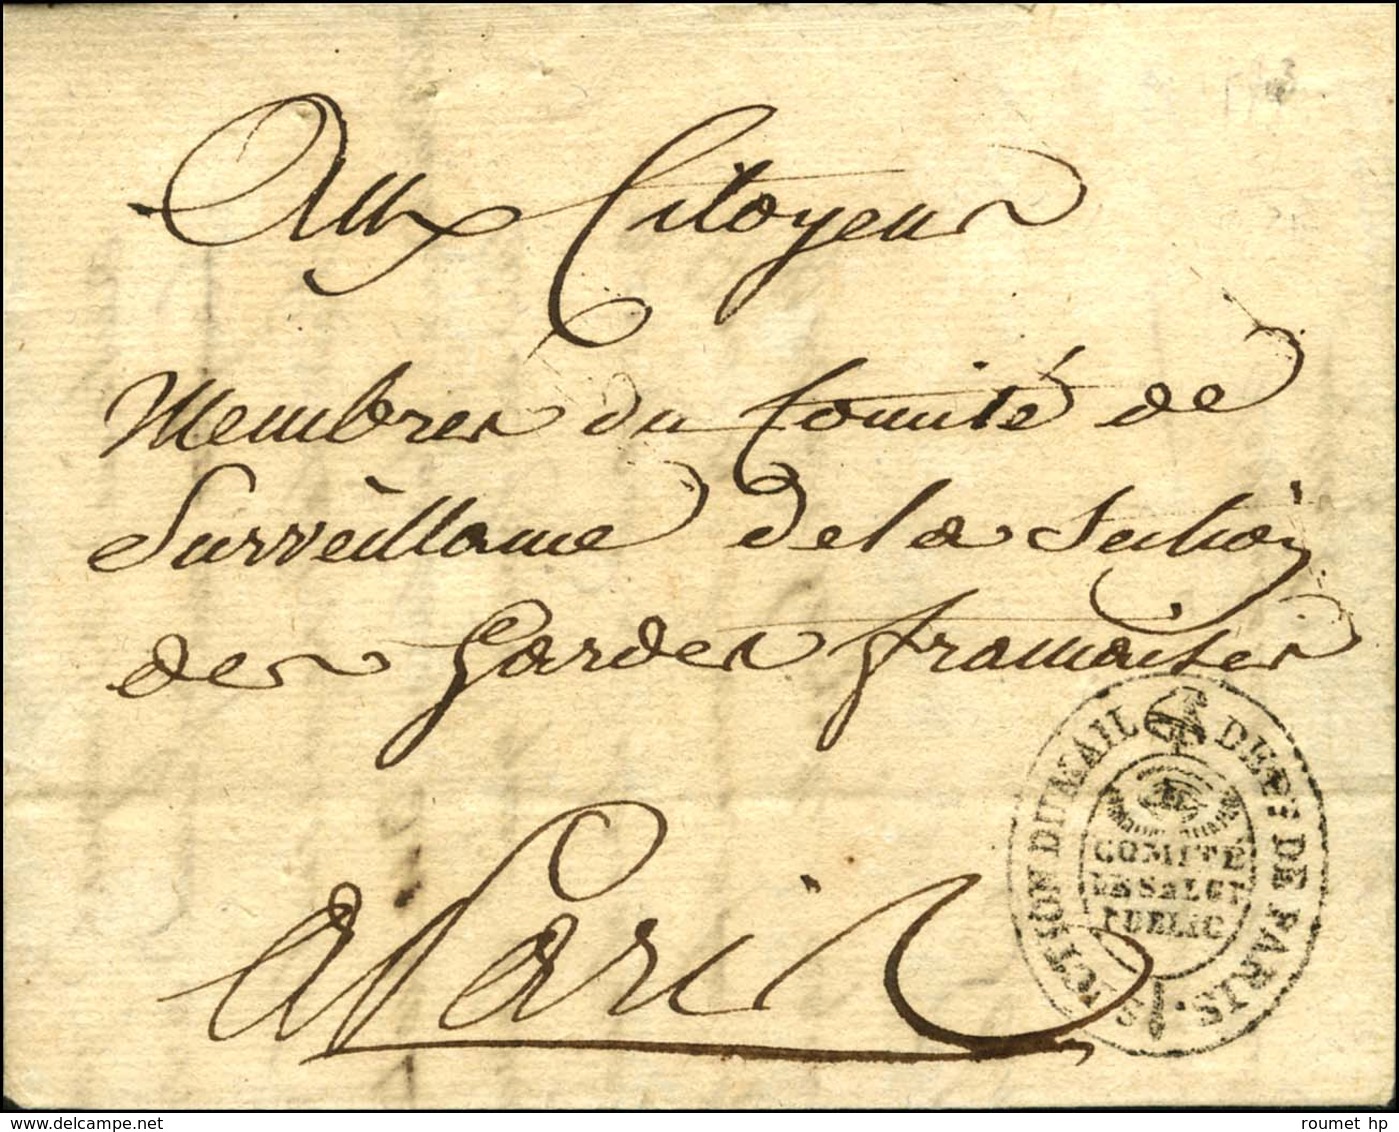 Aux Citoyens
Membres du Comité de
Surveillance de la Section
des Gardes françaises
a Paris
SECTION DU MAIL DEPt DE PARIS.
COMITÉ
DE SALUT
PUBLIC
roumet hp